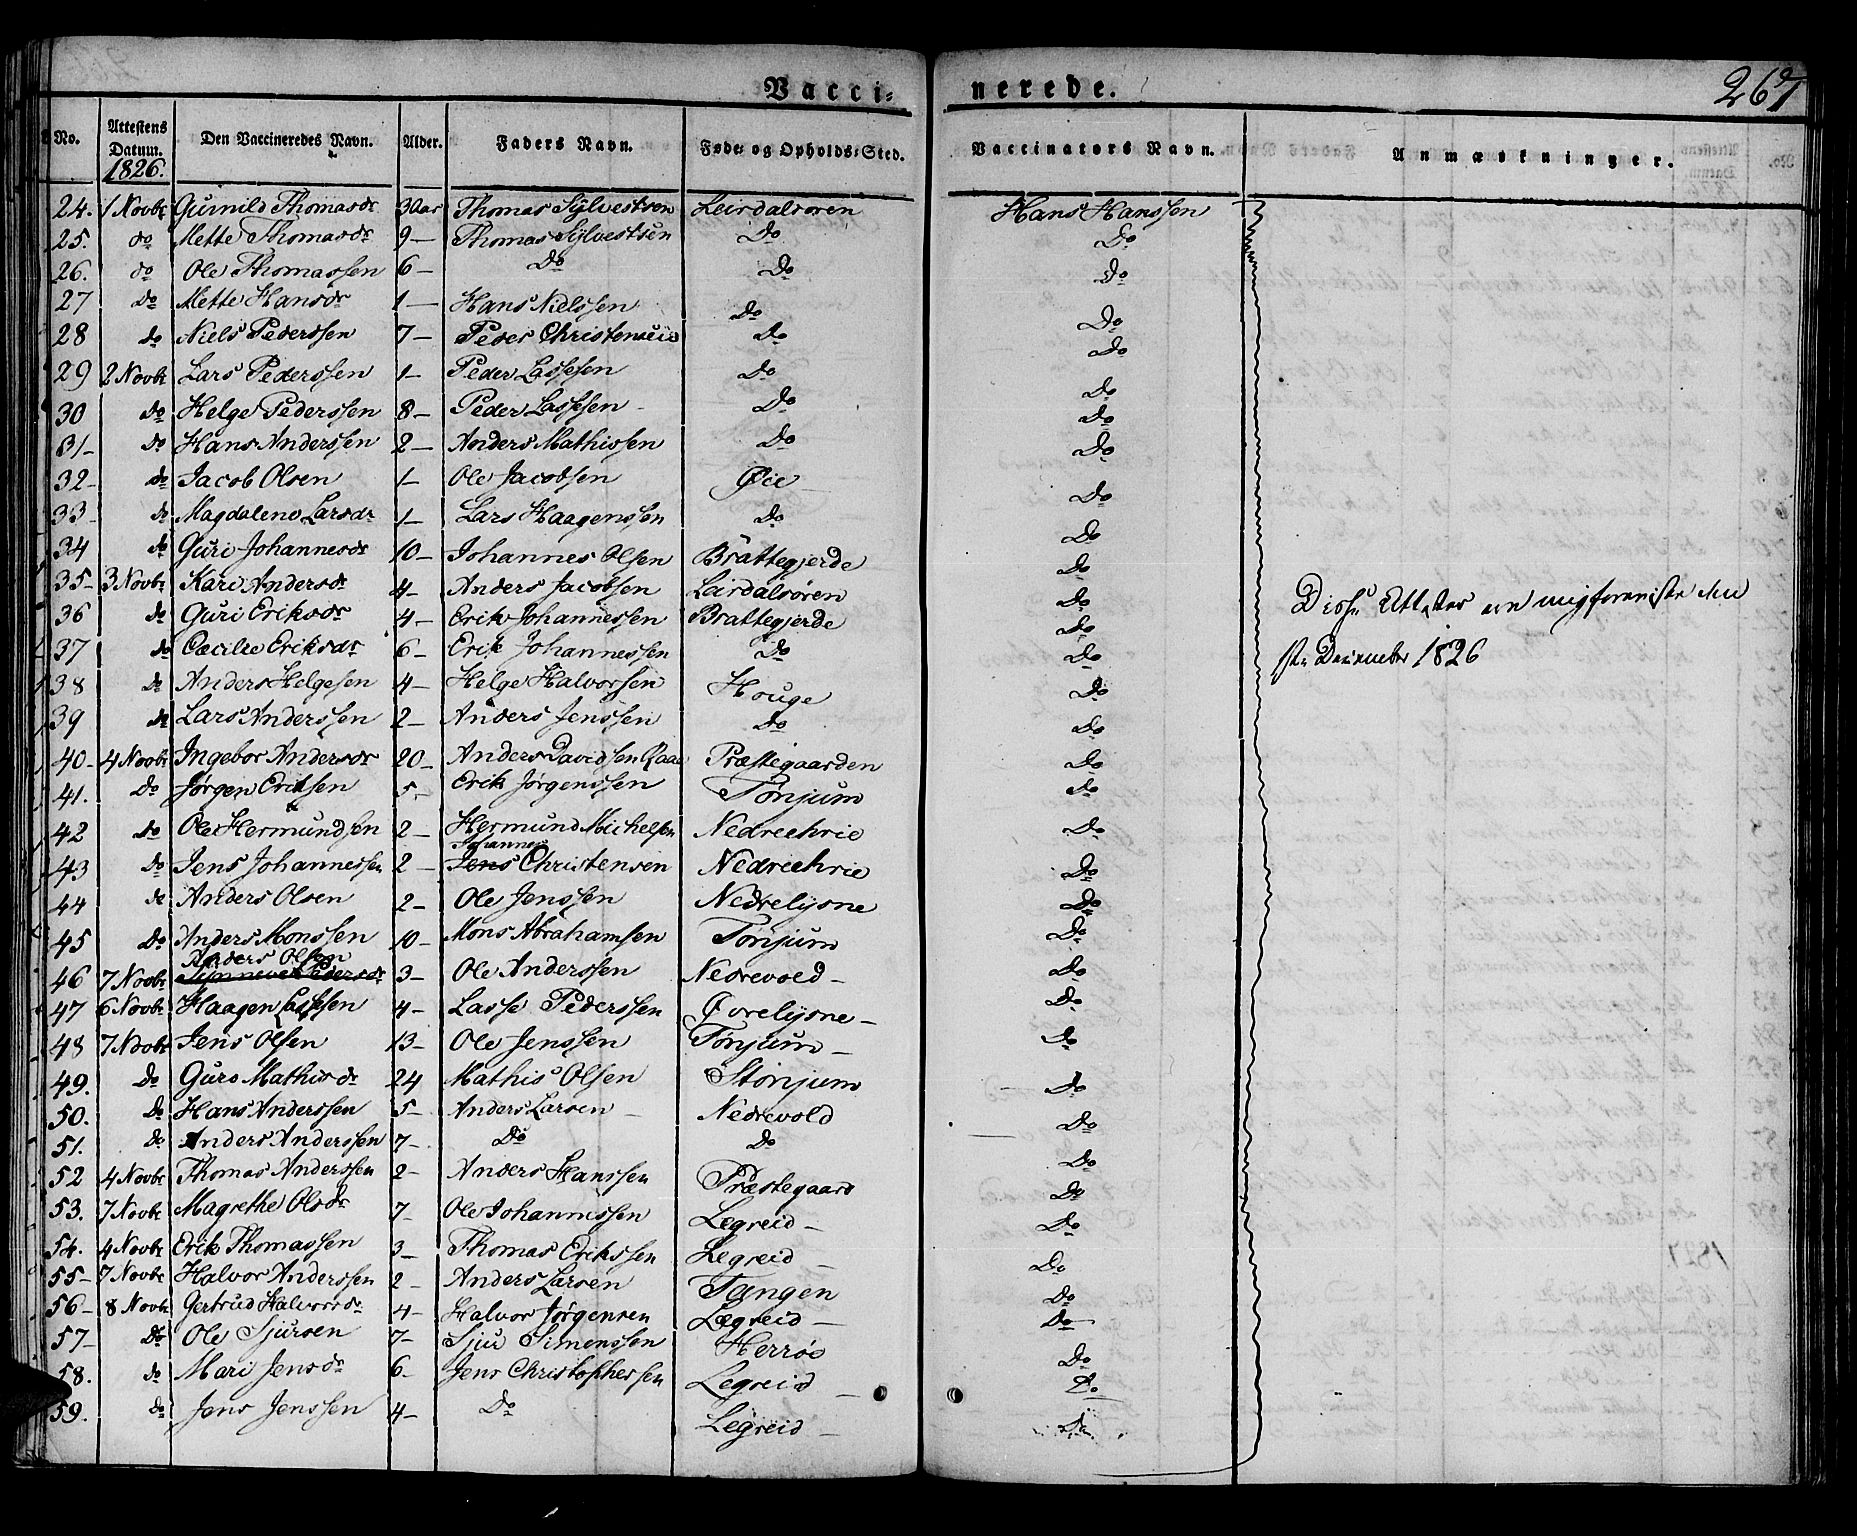 Vaccinerede. 267
No. | Attestens Datum. 1826. | Den Vaccineredes Navn. | Alder. | Faders Navn. | Føde- og Opholds-Sted. | Vaccinators Navn. | Anmærkninger.
24. | 1 Novbr | Gunnild Thomasdr | 30 aar | Thomas Sylvestsen | Leirdalsøren | Hans Hanssen
25. | do | Mette Thomasdr | 9 — | Thomas Sylvestsen | Do | Do
26. | do | Ole Thomassen | 6 — | Do | Do | Do
27 | Do | Mette Hansdr | 1 — | Hans Nielssen | Do | Do
28 | do | Niels Pederssen | 7 — | Peder | Do | Do
29 | 2 Novbr | Lars Pederssen | 1 — | Peder Lassesen | Do | Do
30 | do | Helge Pederssen | 8 — | Peder Lassesen | Do | Do
31 — | Do | Hans Anderssen | 2 — | Anders Mathissen | Do | Do
32 — | do | Jacob Olsen | 1 — | Ole Jacobsen | Øie | Do
33 — | do | Magdalene Larsdr | 1 — | Lars Haagenssen | Do | Do
34 | do | Guri Johannesdr | 10 — | Johannes Olsen | Brattegjerde | Do
35 — | 3 Novbr | Kari Andersdr | 4 — | Anders Jacobsen | Leirdalsøren | Do
36 | do | Guri Eriksdr | 4 — | Erik Johannessen | Brattegjerde | Do
37 | do | Cæcilie Eriksdr | 6 — | Erik Johannessen | Do | Do
38 | do | Anders Helgesen | 4 — | Helge Halvorsen | Houge | Do
39 | do | Lars Anderssen | 2 — | Anders Jenssen | Do | Do
40 — | 4 Novbr | Ingebor Andersdr | 20 — | Anders Davidsen | Præstegaarden | Do
41. | Do | Jørgen Eriksen | 5 — | Erik Jørgenssen | Tønjum | Do
42 | do | Ole Hermundsen | 2 — | Hermund Michelsen | Nedreehrie | Do
43 | Do | Jens Johannessen | 2 — | Johannes Jens Christensen | Nedreehrie | Do
44 | do | Anders Olsen | 2 — | Ole Jenssen | Nedrelysne | Do
45 | Do | Anders Monssen | 10 — | Mons Abrahamsen | Tønjum | Do
46 | 7 Novbr | Anders Olsen Synneve Pedersdr | 3 — | Ole Anderssen | Nedrevold — | Do
47 | 6 Novbr | Haagen Lassesen | 4 — | Lasse Pederssen | Øvrelysne — | Do
48 | 7 Novbr | Jens Olsen | 13 — | Ole Jenssen | Tønjum — | Do
49. | Do | Guro Mathisdr | 24 | Mathis Olsen | Stønjum | Do
50. | Do | Hans Anderssen | 5 — | Anders Larsen — | Nedrevold | Do
51. | do | Anders Anderssen | 7 — | Do | Do | Do
52 | 4 Novbr | Thomas Anderssen | 2 — | Anders Hanssen | Præstegaard | Do
53. | 7 Novbr | Magrethe Olsdr | 7 — | Ole Johannissen | Legreid — | Do
54. | 4 Novbr | Erik Thomassen | 3 — | Thomas Erikssen | Legreid — | Do
55 — | 7 Novbr | Halvor Anderssen | 2 — | Anders Larsen | Tangen | Do
56 — | 8 Novbr | Gertrud Halvorsdr | 4 — | Halvor Jørgensen | Lægreid — | Do
57 — | Do | Ole Sjursen | 7 — | Sjur Simenssen | Herrøe | Do
58. | do | Mari Jensdr | 6 — | Jens Christophersen | Legreid — | Do
59. | do | Jens Jenssen | 4 — | Do | Legreid — | Do
Disse Attester ere mig foreviste den
December 1826